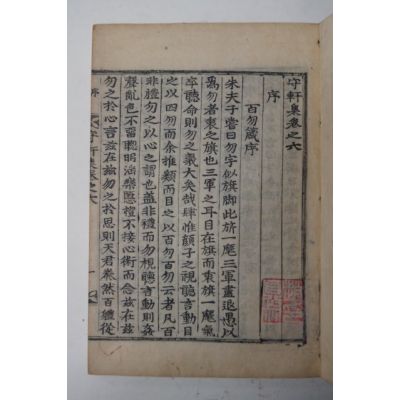 守軒集卷之六
序
百勿箴序
朱夫子嘗曰勿字似旗脚此旗一麾三軍盡退愚以
爲勿者東之旗也三軍之耳目在旗而東旗一麾氣
卒聽命則勿之義大矣哉肆惟顔子之視聽言動目
之以四勿而余推類而目之以百勿百勿云者凡百
非禮勿之以心之謂也蓋非禮而勿視聽言動則姦
聲亂色不留聰明淫樂慝禮不接心術而念兹在兹
勿之於心言兹在兹勿之於思則天君泰然百體從
序
守軒集卷之六
一